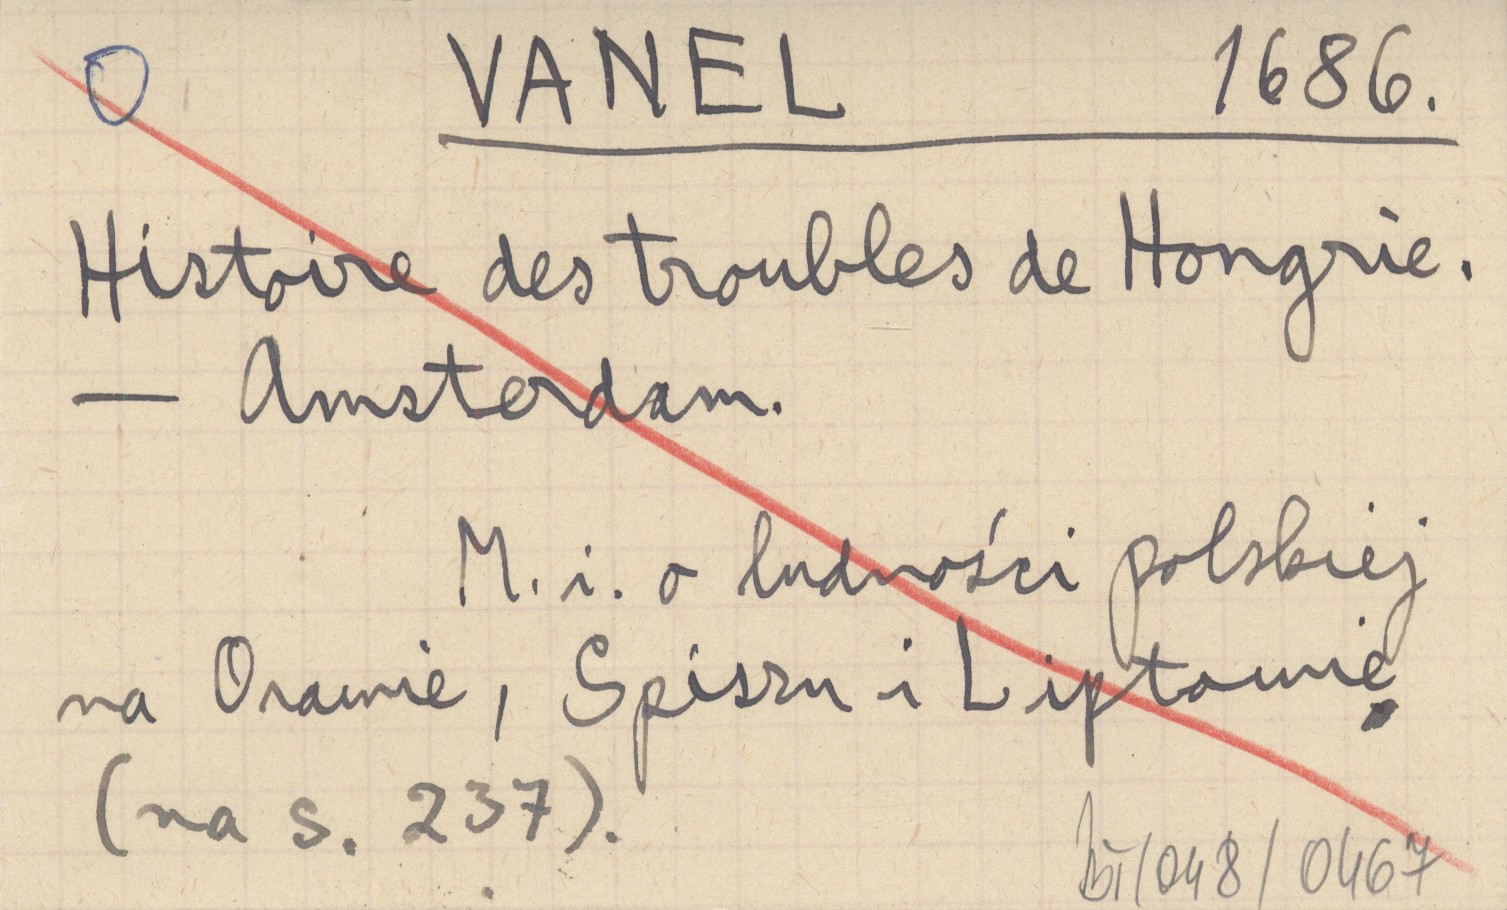 O VANEL 1686.
Histoire des troubles de Hongrie.
— Amsterdam.
M. i. o ludności polskiej
na Orawie, Spiszu i Liptowie.
(na s. 237).
/048/0467